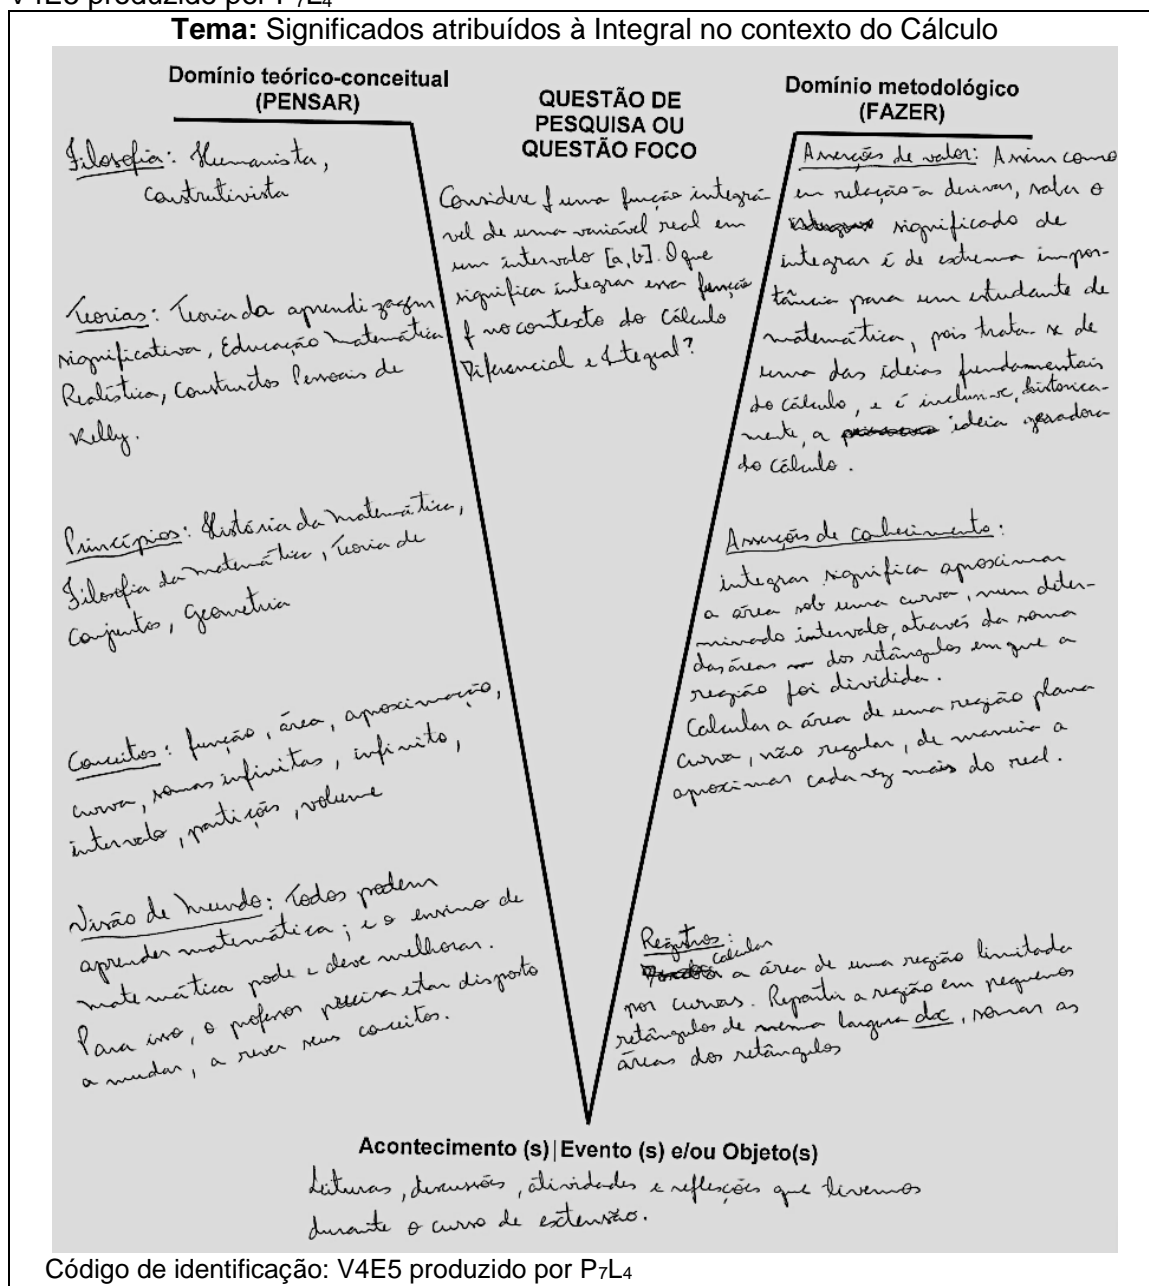 V4E5 produzido por P7L4
Tema: Significados atribuídos à Integral no contexto do Cálculo
Domínio teórico-conceitual
(PENSAR)
Filosofia: Humanista,
construtivista
Teorias: Teoria da aprendizagem
significativa, Educação Matemática
Realística, Constructos Pessoais de
Kelly.
Princípios: História da matemática,
Filosofia da matemática, Teoria de
conjuntos, Geometria
Conceitos: função, área, aproximação,
curva, somas infinitas, infinito,
intervalo, partições, volume
Visão de Mundo: Todos podem
aprender matemática; e o ensino de
matemática pode e deve melhorar.
Para isso, o professor precisa estar disposto
a mudar, a rever seus conceitos.
QUESTÃO DE
PESQUISA OU
QUESTÃO FOCO
Considere f uma função integrá-
vel de uma variável real em
um intervalo [a,b]. O que
significa integrar essa função
f no contexto do Cálculo
Diferencial e Integral?
Domínio metodológico
(FAZER)
Asserções de valor: Assim como
em relação a derivar, saber o
significado de
integrar é de extrema impor-
tância para um estudante de
matemática, pois trata-se de
uma das ideias fundamentais
do cálculo, e é inclusive, historica-
mente, a ideia geradora
do cálculo.
Asserções de conhecimento:
integrar significa aproximar
a área sob uma curva, num deter-
minado intervalo, através da soma
das áreas dos retângulos em que a
região foi dividida.
Calcular a área de uma região plana
curva, não regular, de maneira a
aproximar cada vez mais do real.
Registros:
calcular
a área de uma região limitada
por curvas. Repartir a região em pequenos
retângulos de mesma largura dx, somar as
áreas dos retângulos
Acontecimento (s)|Evento (s) e/ou Objeto(s)
Leituras, discussões, atividades e reflexões que tivemos
durante o curso de extensão.
Código de identificação: V4E5 produzido por P7L4